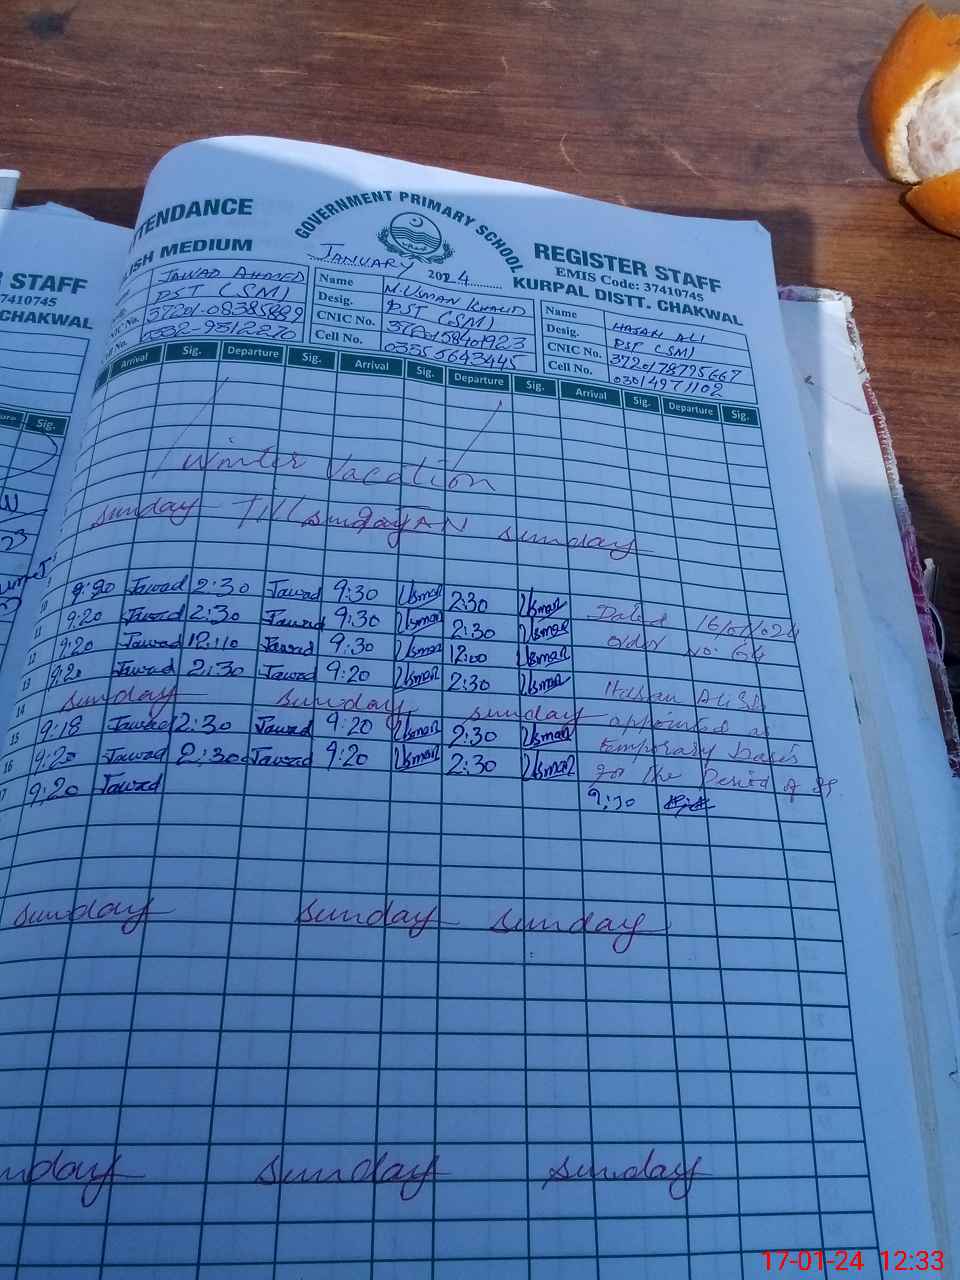 TTENDANCE
GOVERNMENT PRIMARY SCHOOL
REGISTER STAFF
LISH MEDIUM
JANUARY 2024
EMIS Code: 37410745
KURPAL DISTT. CHAKWAL
R STAFF
7410745
CHAKWAL
JAWAD AHMED
Name M. USMAN KHALID
Name HASAN ALI
PST (SM)
Desig. PST (SM)
Desig. PST (SM)
CNIC No.
CNIC No.
CNIC No. 3720178775667
Cell No.
Cell No. 03355643445
Cell No. 03014971102
Arrival Sig. Departure Sig. Arrival Sig. Departure Sig. Arrival Sig. Departure Sig.
Sig.
Winter Vacation
sunday Till sunday sunday
9:20 Jawad 2:30 Jawad 9:30 Usman 2:30 Usman
10 9:20 Jawad 2:30 Jawad 9:30 Usman 2:30 Usman Dated
11 9:20 Jawad 12:10 Jawad 9:30 Usman 12:00 Usman No: 64
12 9:20 Jawad 2:30 Jawad 9:20 Usman 2:30 Usman Hassan Ali
13 sunday sunday sunday appointed as
14 9:18 Jawad 2:30 Jawad 9:20 Usman 2:30 Usman temporary basis
15 9:20 Jawad 2:30 Jawad 9:20 Usman 2:30 Usman for the Period of
16 9:20 Jawad 9:30
17
sunday sunday sunday
nday sunday sunday
17-01-24 12:33